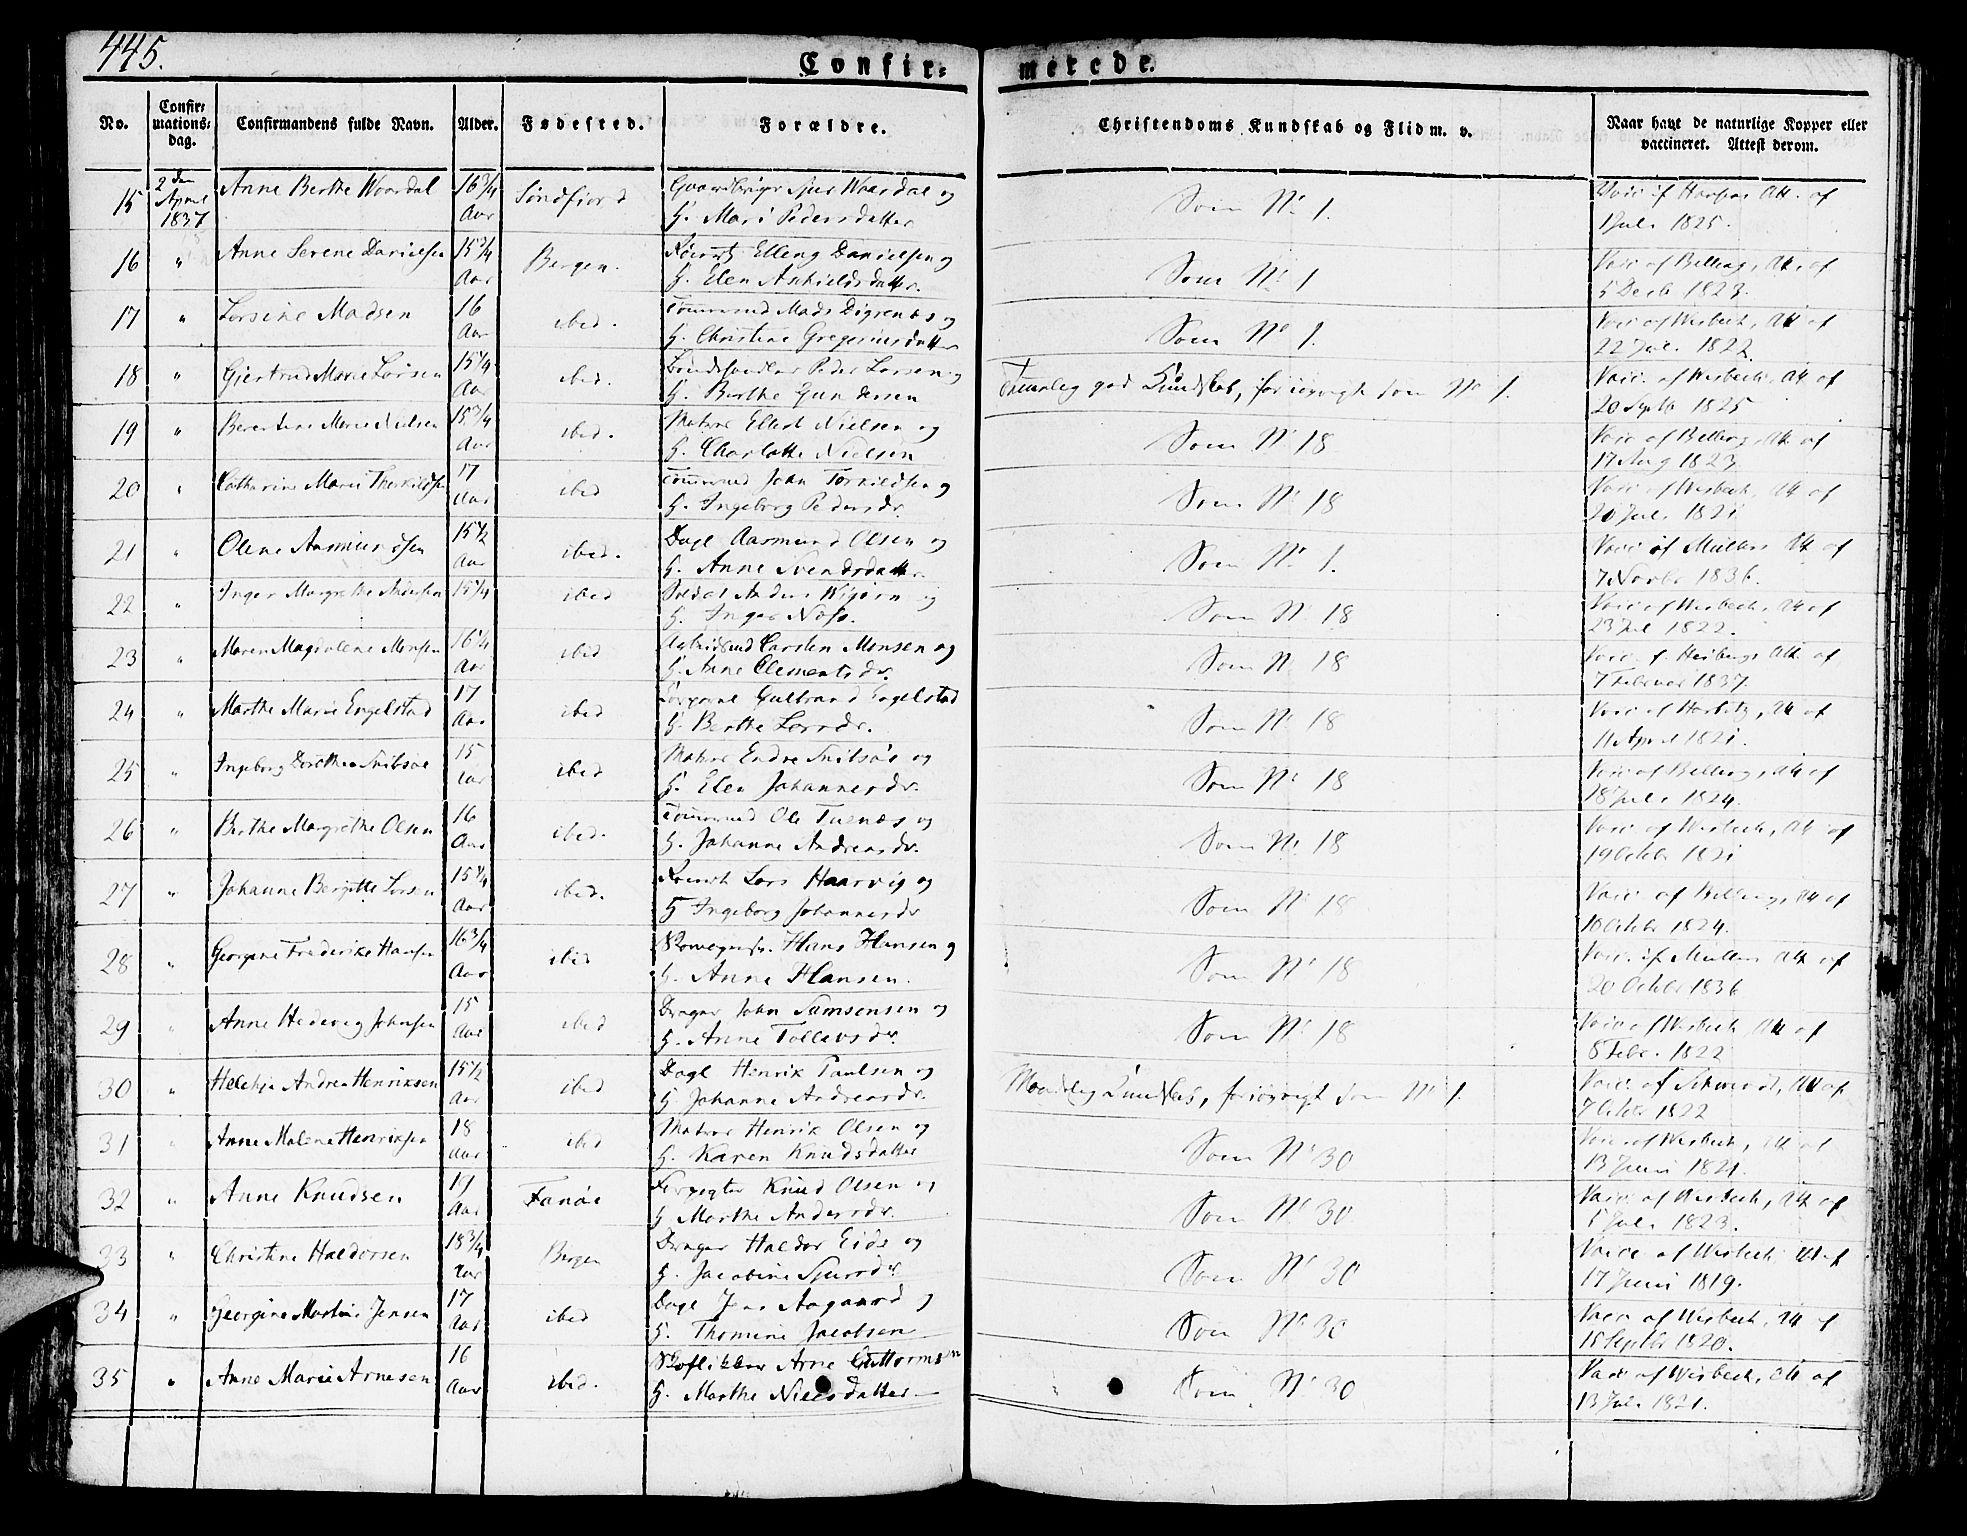 445.
Confir-
merede.
No.
Confir-
mations-
dag.
Confirmandens fulde Navn.
Alder.
Fødested.
Forældre.
Christendoms Kundskab og Flid m. v.
Naar havt de naturlige Kopper eller
vaccineret. Attest derom.
15 2den April 1837 Anne Berthe Waardal 16 3/4 Aar Søndfiord
Sjur Waardal og
H. Mari Pedersdatter
Som No 1.
Vacc. af Att. af
1 Juli 1825.
16 " Anne Serene Danielsen 15 3/4 Aar Bergen.
Elleng Danielsen og
H. Elen
Som No 1
Vacc af Att. af
5 Decb 1823.
17 " Madsen 16 Aar ibed.
Tømmermd Mads Digrenæs og
H. Christine Gregeriusdatter
Som No 1.
Vacc af Wisbech, Att af
22 Juli 1822.
18 " Giertrud Marie Larsen 15 1/4 Aar ibed.
Peder Larsen og
H. Berthe Gundersen
Temelig god Kundskab, forøvrigt som No 1.
Vacc. af Wisbech, Att af
20 Septb 1825
19 " Marie Nielsen 15 3/4 Aar ibed.
Matros Nielsen og
H. Charlotte Nielsen
Som No 18
Vacc af Att af
17 Aug 1823
20 " Cathrine Marie Therkildsen 17 Aar ibed
Tømmermd John Torkildsen og
H. Ingeborg Pedersdr.
Som No 18
Vacc af Wisbech, Att af
20 Juli 1821
21 " Olene Aasmundsen 15 1/2 Aar ibed.
Dagl Aasmund Olsen og
H. Anne Svendsdatter
Som No 1.
Vacc af Müller Att af
7 Novbr 1836.
22 " Inger Margrethe Andersen 15 1/4 ibed
Soldat Anders og
H. Inger Næss.
Som No 18
Vacc af Wisbech, Att af
23 Juli 1822.
23 " Maren Magdalene Monsen 16 1/4 Aar ibed
Carsten Monsen og
H. Anne Clementsdr.
Som No 18
Vacc. af Att af
7 Februar 1837.
24 " Marthe Marie Engelstad 17 Aar ibed
Gulbrand Engelstad
H. Berthe Larsdr.
Som No 18
Vacc af Att af
11 April 1821.
25 " Ingeborg Dorothea 15 Aar ibed
Matros Endre og
H. Elen Johannesdr.
Som No 18
Vacc af Att af
18 Juli 1824.
26 " Berthe Margrethe Olsen 16 Aar ibed.
Tømmermd Ole Tuenæs og
H. Johanne Andreasdr.
Som No 18
Vacc af Wisbech, Att af
19 Octbr 1821
27 " Johanne Bergitte Larsen 15 1/4 Aar ibed.
Lars Haarvig og
H Ingeborg Johannesdr
Som No 18
Vacc af Att af
10 Octbr 1824.
28 " Georgine Frederikke Hansen 16 3/4 Aar ibed
Hans Hansen og
H. Anne Hansen.
Som No 18
Vacc. af Müller Att af
20 Octbr 1836
29 " Anne Hedevig Johnsen 15 Aar ibed
Drager John Samsonsen og
H. Anne Tollevsdr.
Som No 18
Vacc af Wisbech Att af
8 Febr. 1822
30 " Andrea Henriksen 15 1/2 Aar ibed
Dagl Henrik Paulsen og
H. Johanne Andreasdr.
Maadelig Kundskab, forøvrigt som No 1.
Vacc. af Att af
7 Octbr 1822
31 " Anne Malene Henriksen 18 Aar ibed
Matros Henrik Olsen og
H. Karen Knudsdatter
Som No 30
Vacc. af Wisbech, Att af
13 Juni 1821.
32 " Anne Knudsen 19 Aar Fanøe
Knud Olsen og
H Marthe Andersdr.
Som No 30
Vacc af Wisbech, Att af
5 Juli 1823.
33 " Christine Haldorsen 18 3/4 Aar Bergen
Drager Haldor Eide og
H. Jacobine Sjursdr.
Som No 30
Vacc af Wisbech Att af
17 Juni 1819.
34 " Georgine Martine Jensen 17 Aar ibed
Dagl Jens Aagaard og
H. Thomine Jacobsen
Som No 30
Vacc af Wisbech, Att af
18 Septbr 1820.
35 " Anne Marie Arnesen 16 Aar ibed.
Skoflikker Arne Guttormsen
H. Marthe Nielsdatter
Som No 30
Vacc af Wisbech, Att af
13 Juli 1821.